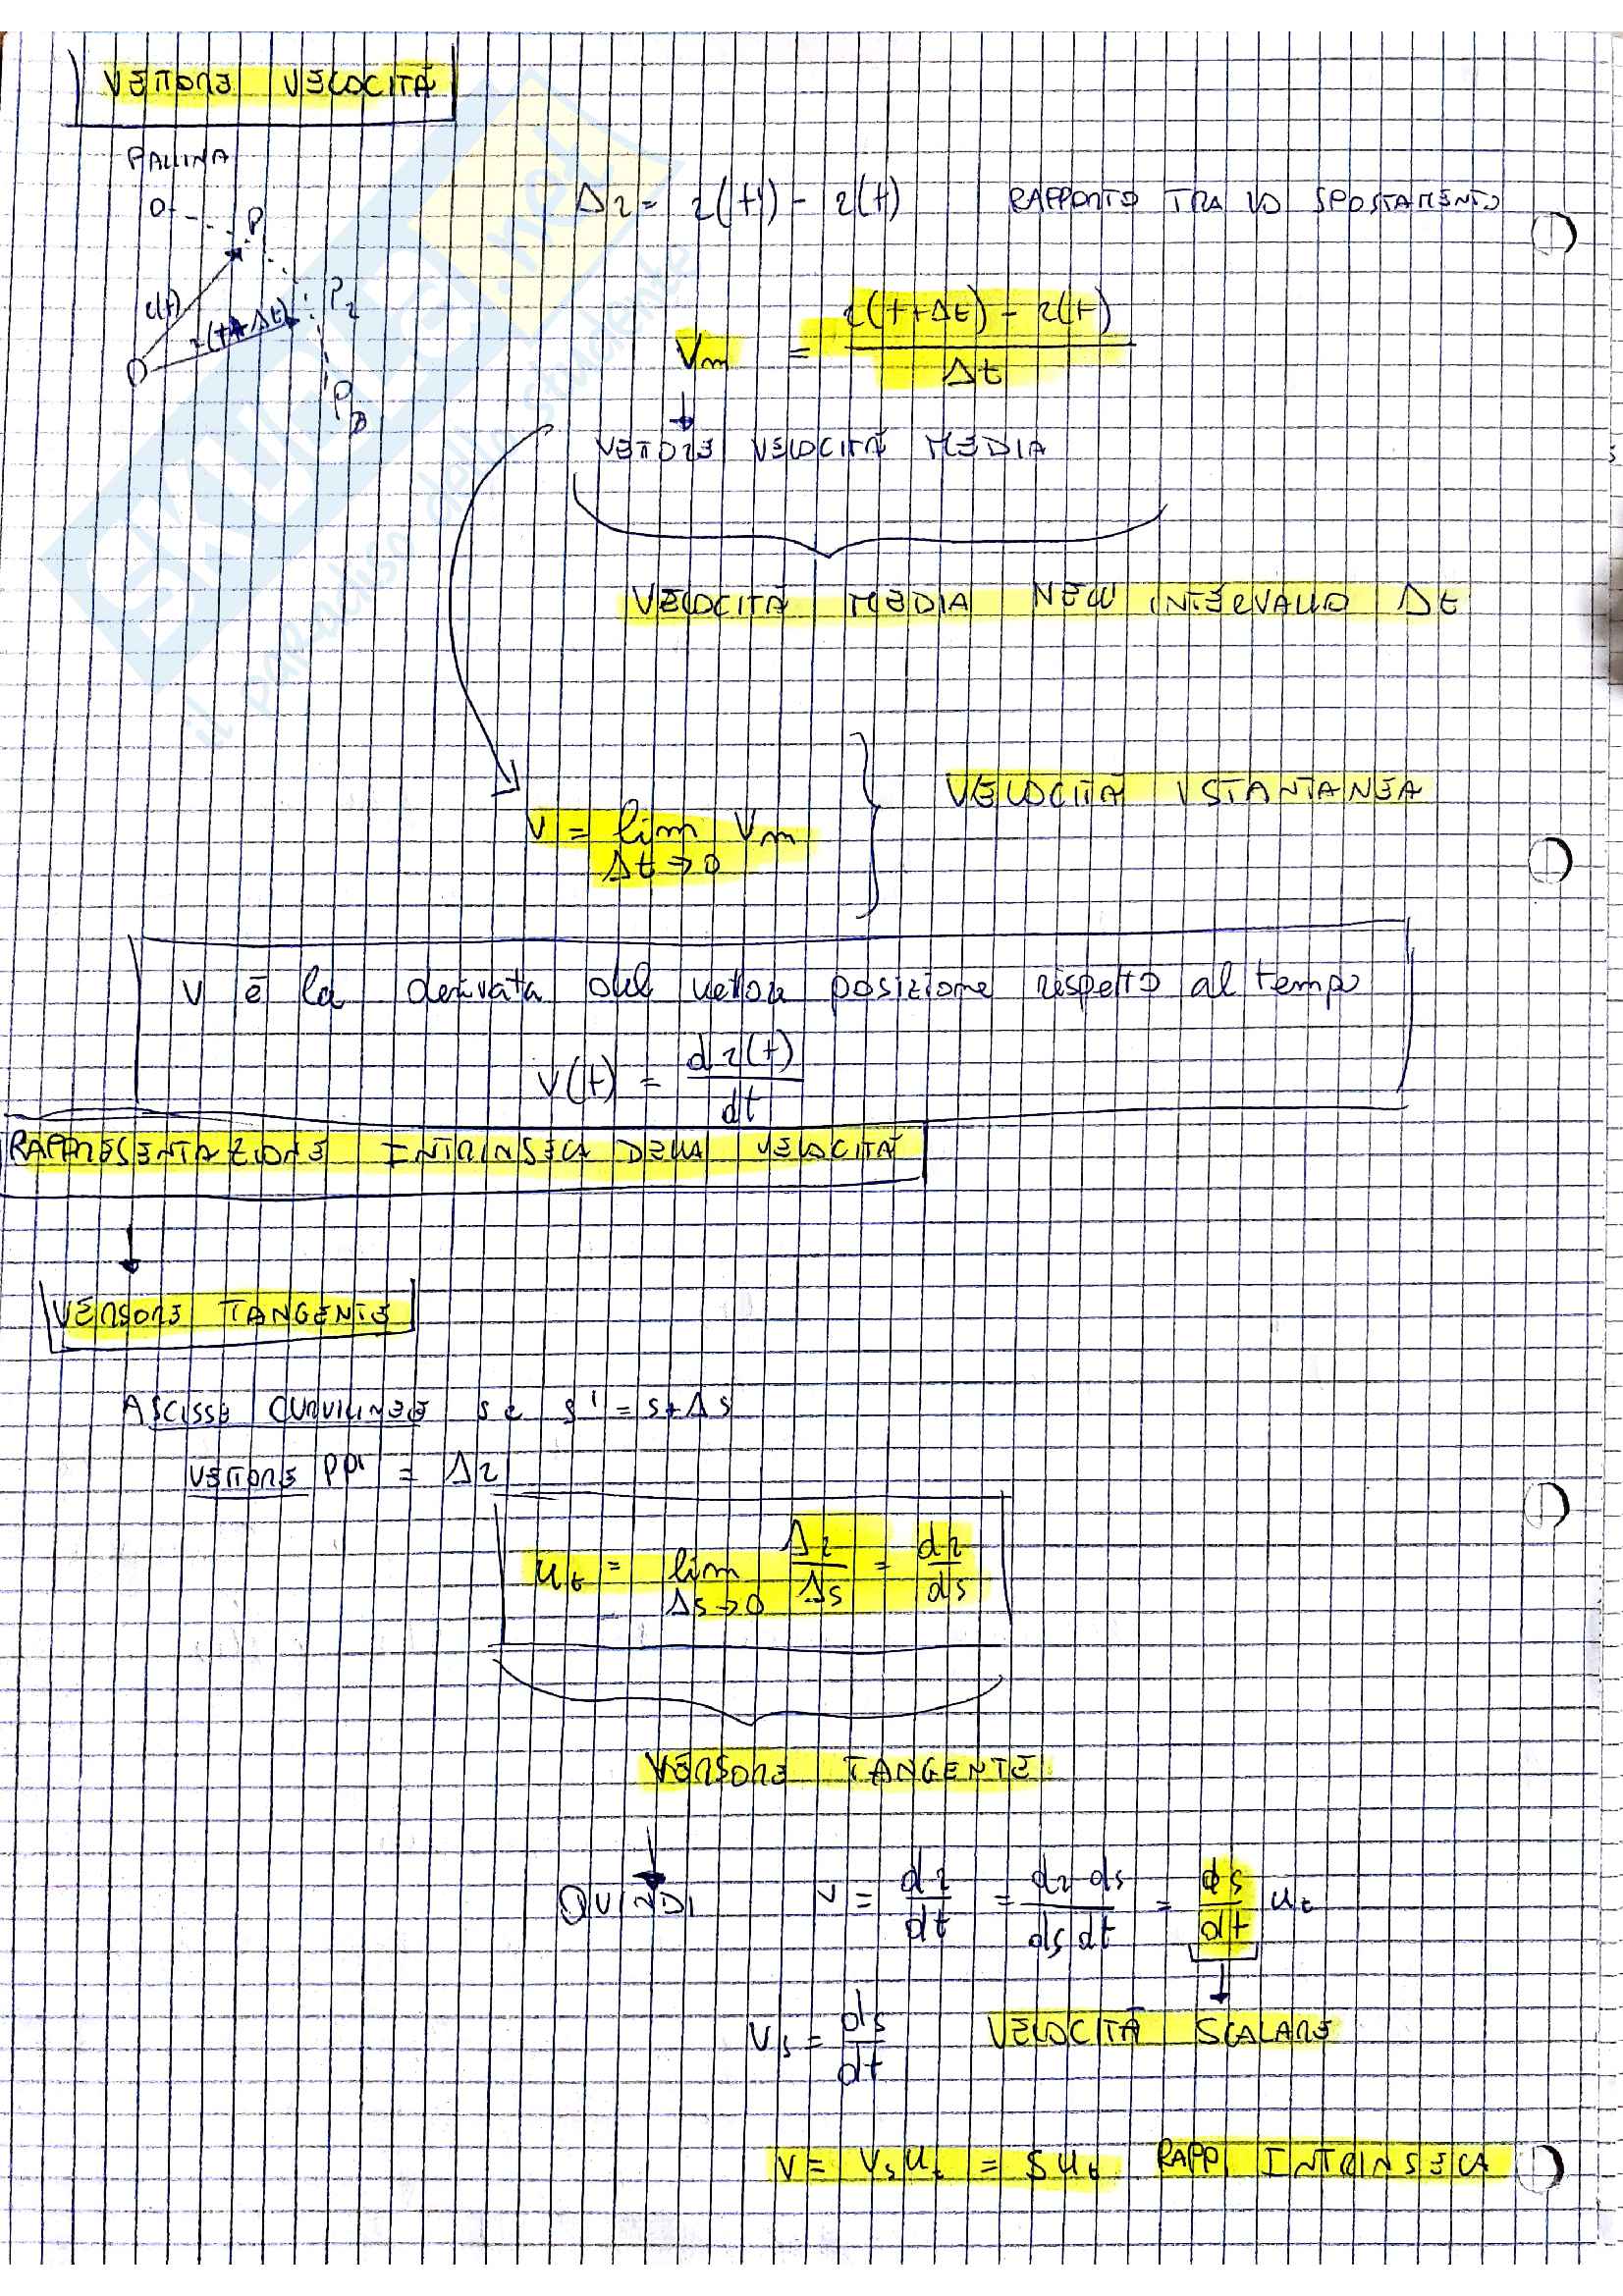 VETTORE VELOCITÀ
PALLINA
P
r(t)
r(t+Δt)
P2
O
Δr = r(t') - r(t) RAPPORTO TRA LO SPOSTAMENTO
Vm = r(t+Δt) - r(t) / Δt
VETTORE VELOCITÀ MEDIA
VELOCITÀ MEDIA NELL'INTERVALLO Δt
V = lim Vm
Δt → 0
VELOCITÀ ISTANTANEA
V è la derivata del vettore posizione rispetto al tempo
V(t) = dr(t) / dt
RAPPRESENTAZIONE INTRINSECA DELLA VELOCITÀ
VERSORE TANGENTE
ASCISSE CURVILINEE s e s' = s+Δs
VETTORE PP' = Δr
ut = lim Δr/Δs = dr/ds
Δs → 0
VERSORE TANGENTE
QUINDI v = dr/dt = dr ds / ds dt = ds/dt ut
Vs = ds/dt VELOCITÀ SCALARE
V = Vs ut = s ut RAPP. INTRINSECA
il paradiso dello studente